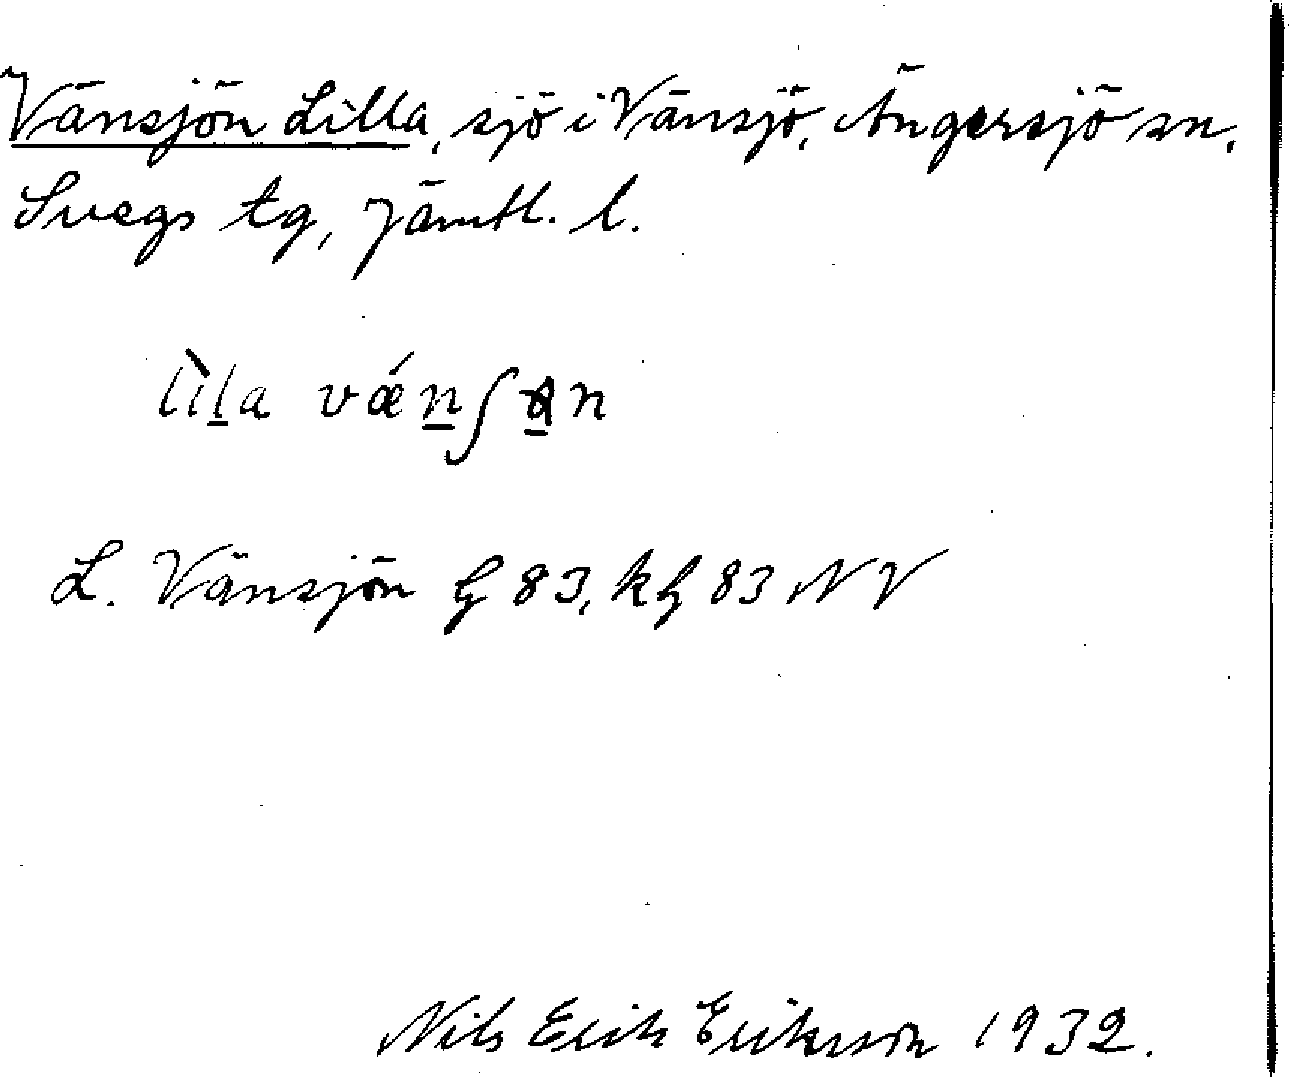 Vänsjön Lilla, sjö i Vänsjö, Ängersjö sn,
Svegs tg, Jämtl. l.
lìl̲a vǽn̲ʃn
L. Vänsjön G 83, kG 83 NV
Nils Erik Erikson 1932.